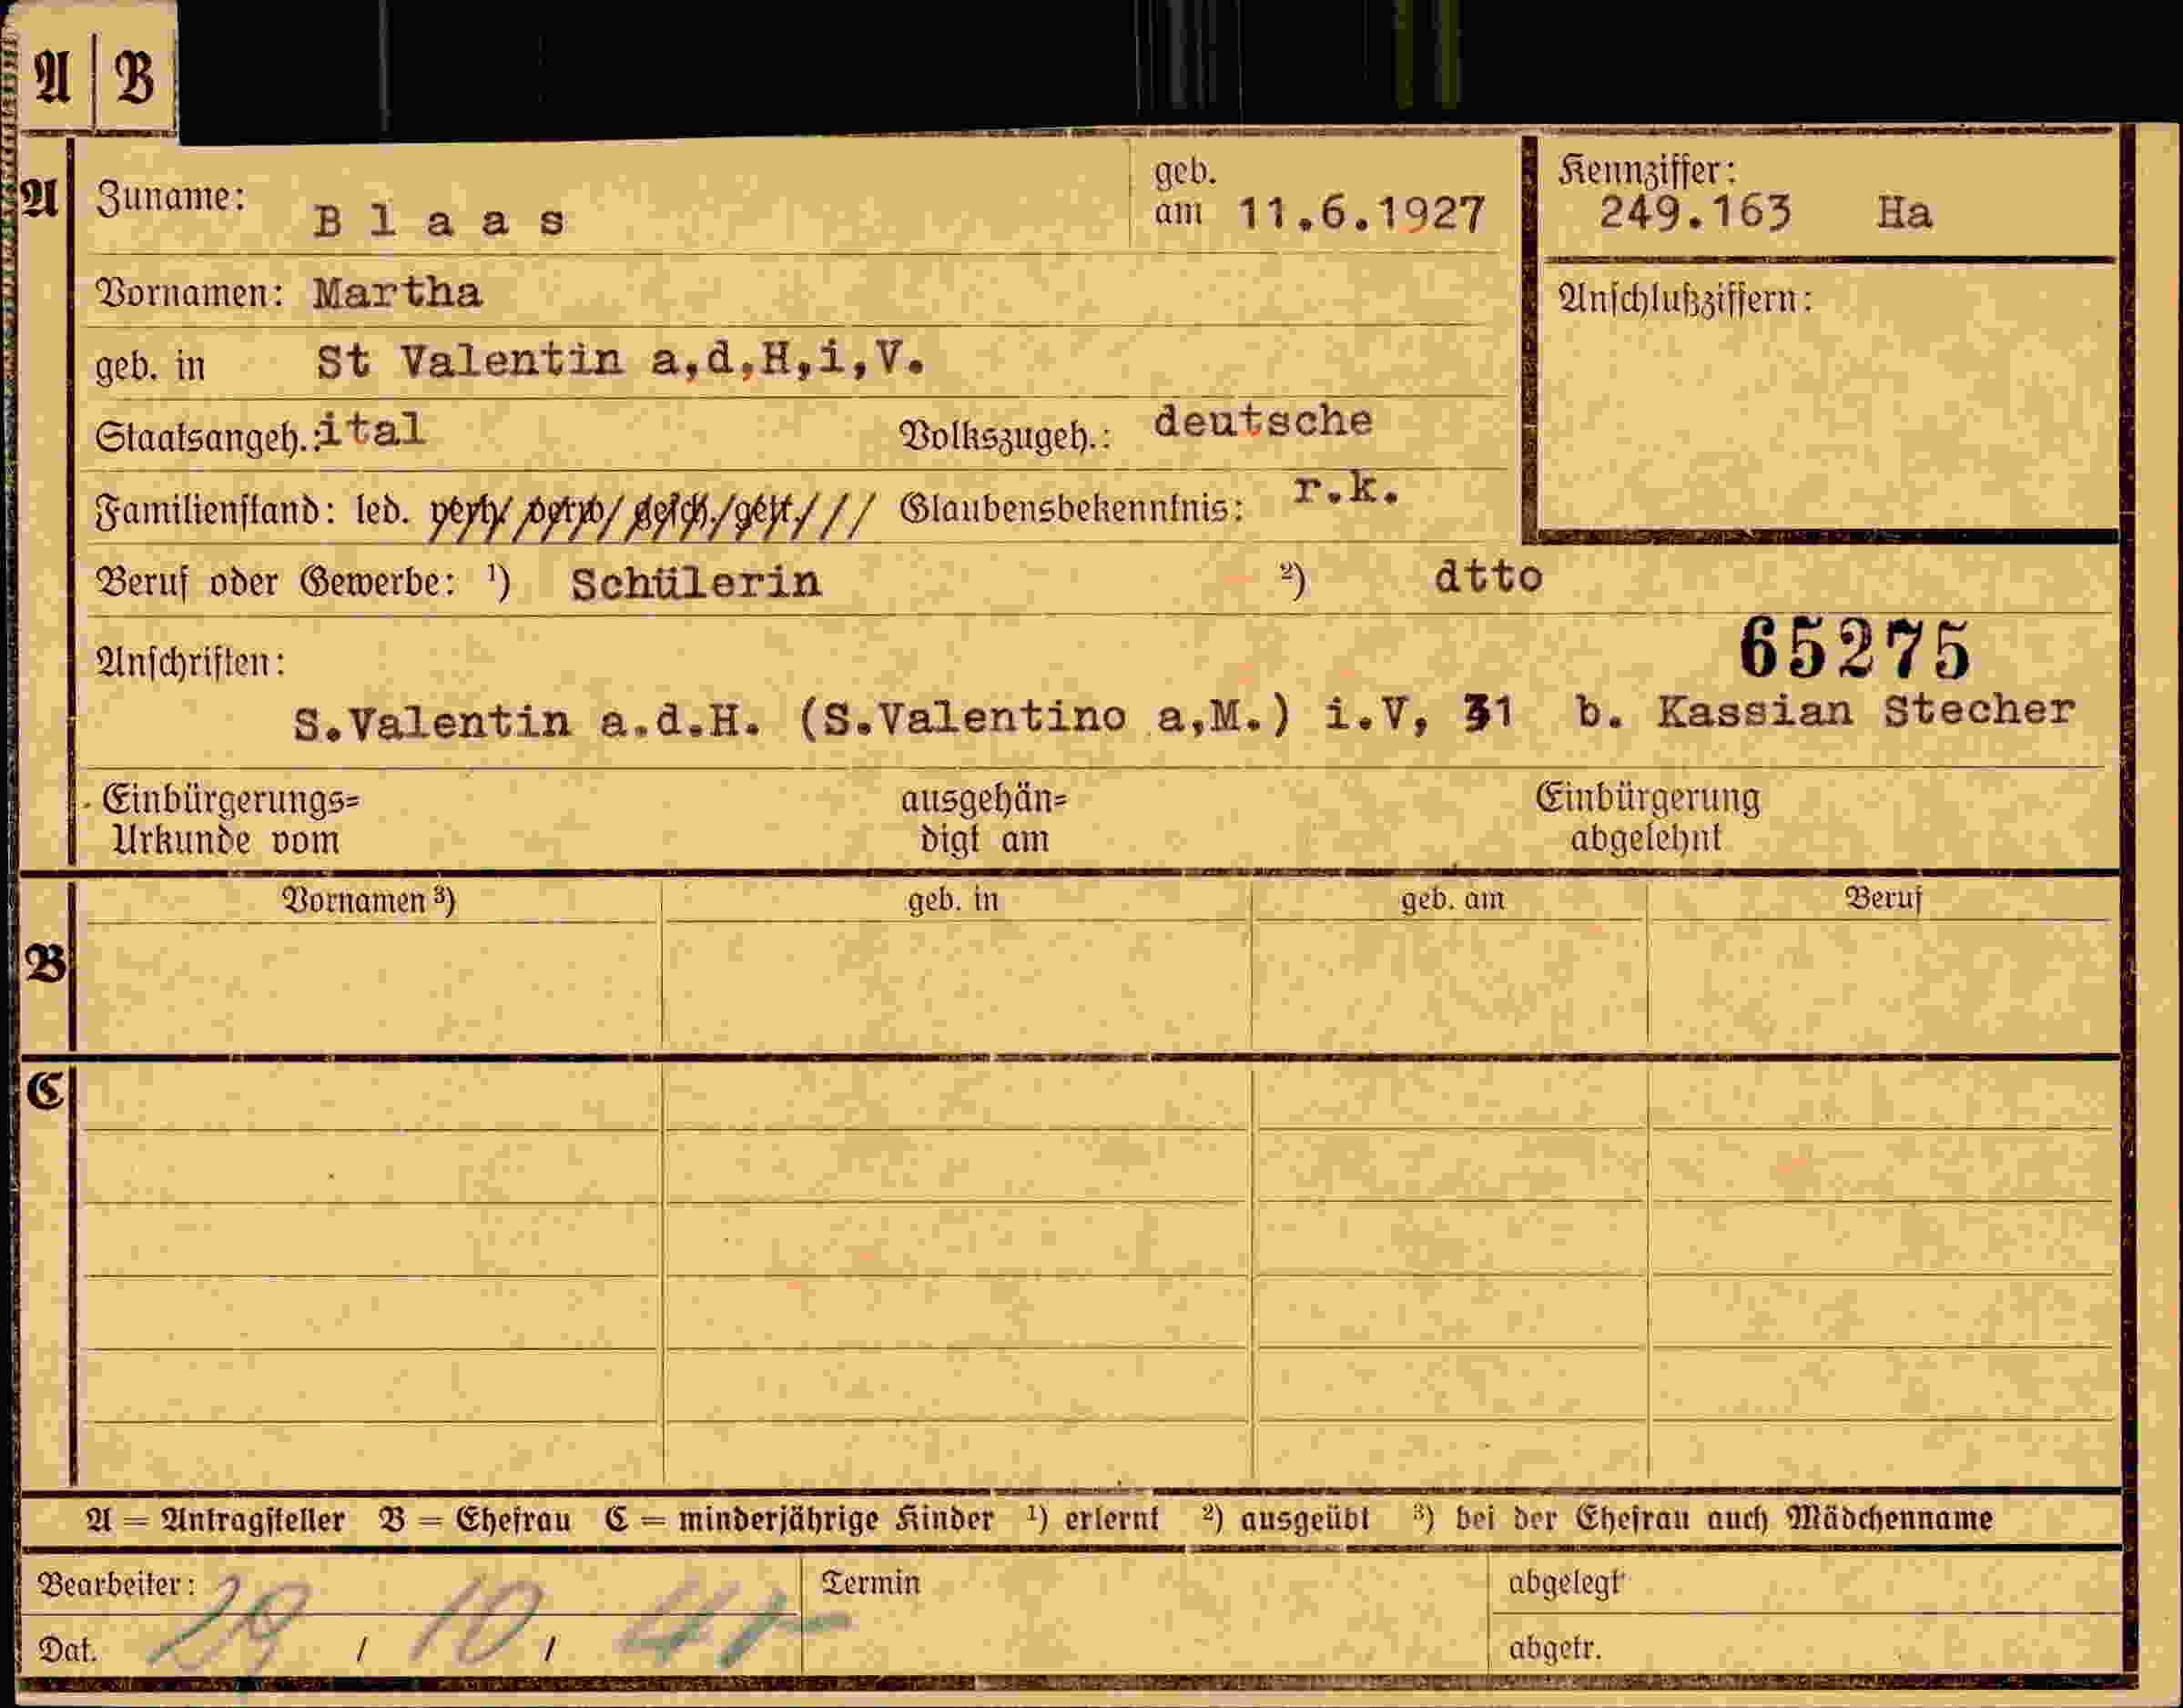 A | B
A
Zuname: Blaas
geb. am 11.6.1927
Kennziffer: 249.163 Ha
Vornamen: Martha
Anschlußziffern:
geb. in St Valentin a,d,H,i,V.
Staatsangeh.: ital Volkszugeh.: deutsche
Familienstand: led. verh. verw. gesch. getr. / / / Glaubensbekenntnis: r.k.
Beruf oder Gewerbe: ¹) Schülerin ²) dtto
65275
Anschriften:
S.Valentin a.d.H. (S.Valentino a,M.) i.V, 31 b. Kassian Stecher
Einbürgerungs=
Urkunde vom
ausgehän=
digt am
Einbürgerung
abgelehnt
B
Vornamen ³) geb. in geb. am Beruf
C
A = Antragsteller B = Ehefrau C = minderjährige Kinder ¹) erlernt ²) ausgeübt ³) bei der Ehefrau auch Mädchenname
Bearbeiter: Termin abgelegt
Dat. 29 / 10 / abgetr.